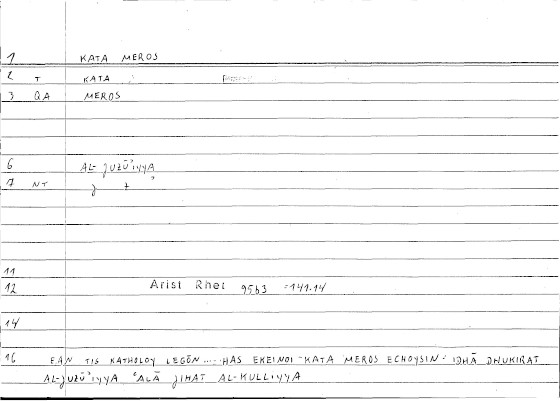 1 KATA MEROS
2 T KATA
3 QA MEROS
6 AL-ǦUZŪʾIYYA
7 NT
11
12 Arist Rhet 95b3 =141.14
14
16 EAN TIS KATHOLOY LEGŌN.....HAS EKEINOI KATA MEROS ECHOYSIN : IDHĀ DHUKIRAT
AL-ǦUZŪʾIYYA ʿALĀ ǦIHAT AL-KULLIYYA